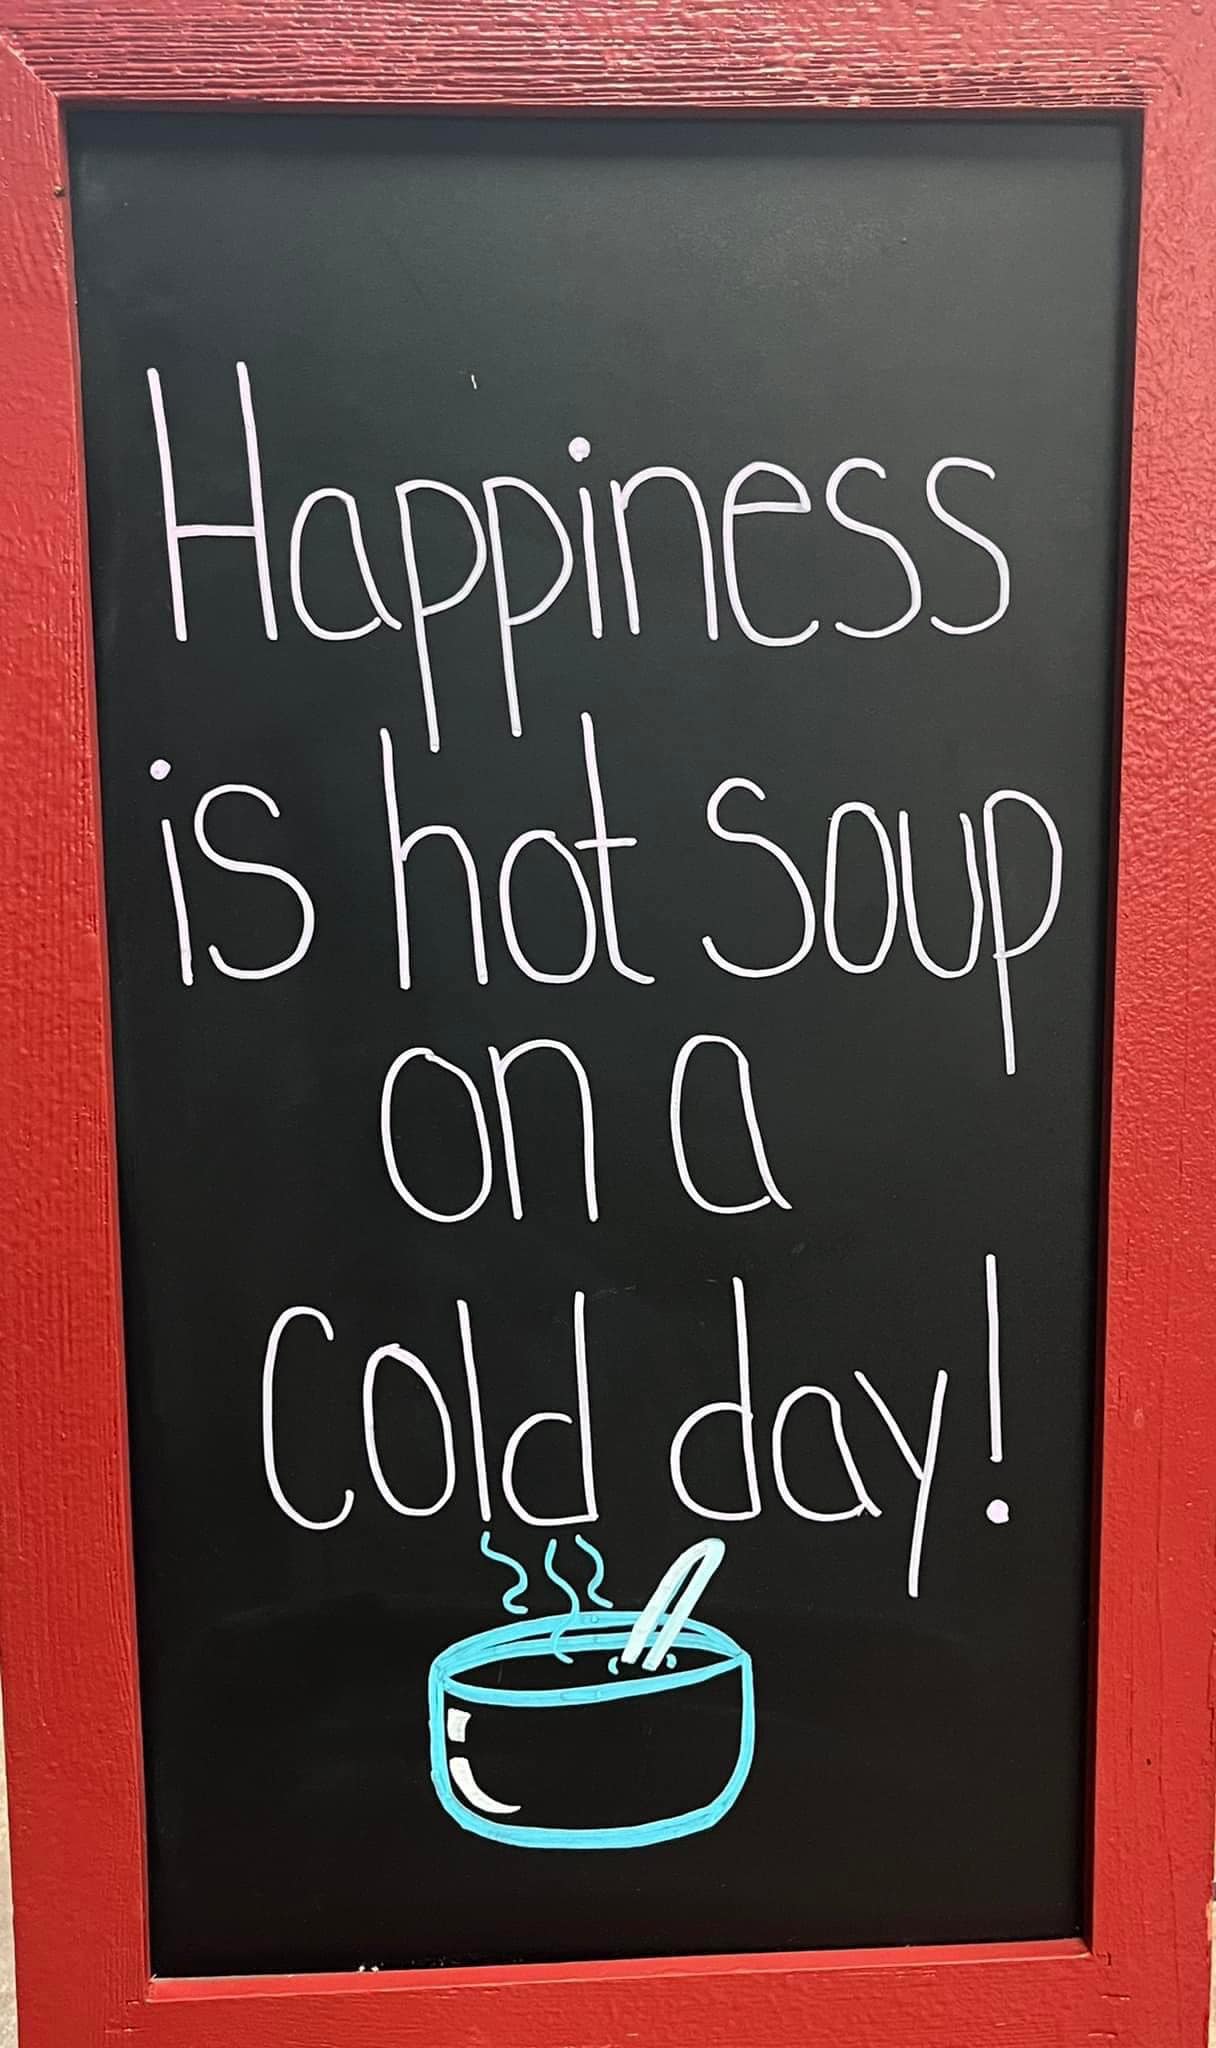 Happiness
is hot soup
on a
cold day!